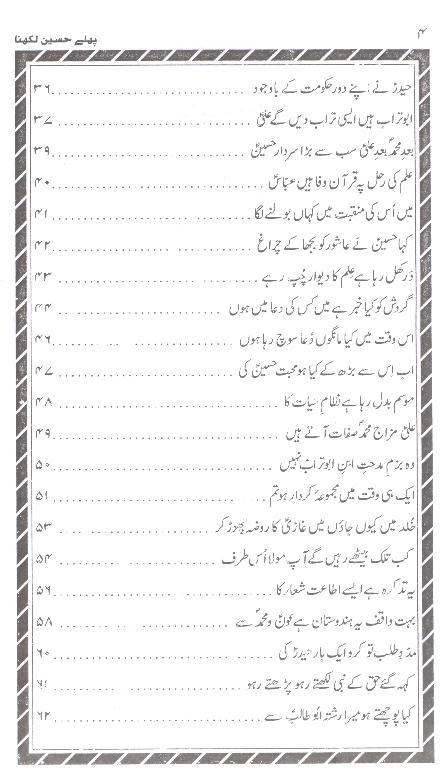 ۴
پہلے حسین لکھنا
حیدرؑ نے اپنے دور حکومت کے باوجود ۳۶
ابوتراب ہیں ایسی تراب دیں گے علیؑ ۳۷
بعد محمدؐ بعد علیؑ سب سے بڑا سردار حسینؑ ۳۹
علم کی رحل پہ قرآن وفا ہیں عباسؑ ۴۰
میں اُس کی منقبت میں کہاں بولنے لگا ۴۱
کہا حسینؑ نے عاشور کو بجھا کے چراغ ۴۲
دَر کھل رہا ہے علم کا دیوار چُپ رہے ۴۳
گردش کو کیا خبر ہے میں کس کی دعا میں ہوں ۴۴
اس وقت میں کیا مانگوں دُعا سوچ رہا ہوں ۴۶
اب اِس سے بڑھ کے کیا ہو محبت حسینؑ کی ۴۷
موسم بدل رہا ہے نظامِ حیات کا ۴۸
علیؑ مزاج محمدؐ صفات آتے ہیں ۴۹
وہ بزمِ مدحتِ ابنِ ابوترابؑ نہیں ۵۰
ایک ہی وقت میں مجموعۂ کردار ہو تم ۵۱
خُلد میں کیوں جاؤں میں غازیؑ کا روضہ چھوڑ کر ۵۳
کب تلک بیٹھے رہیں گے آپ مولا اُس طرف ۵۴
یہ تذکرہ ہے ایسے اطاعت شعار کا ۵۶
بہت واقف یہ ہندوستان ہے عونؑ و محمدؑ سے ۵۸
مدد طلب تو کرو ایک بار حیدرؑ کی ۶۰
کہہ گئے حق کے نبی لکھتے رہو پڑھتے رہو ۶۱
کیا پوچھتے ہو میرا رشتہ ابو طالبؑ سے ۶۲